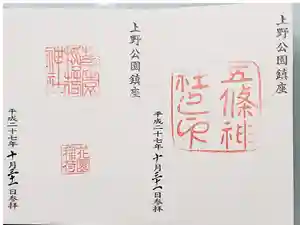 上野公園鎮座
五條神
社之印
平成二十七年十月三十一日参拝
上野公園鎮座
神社
花園
稲荷
平成二十七年十月三十一日参拝